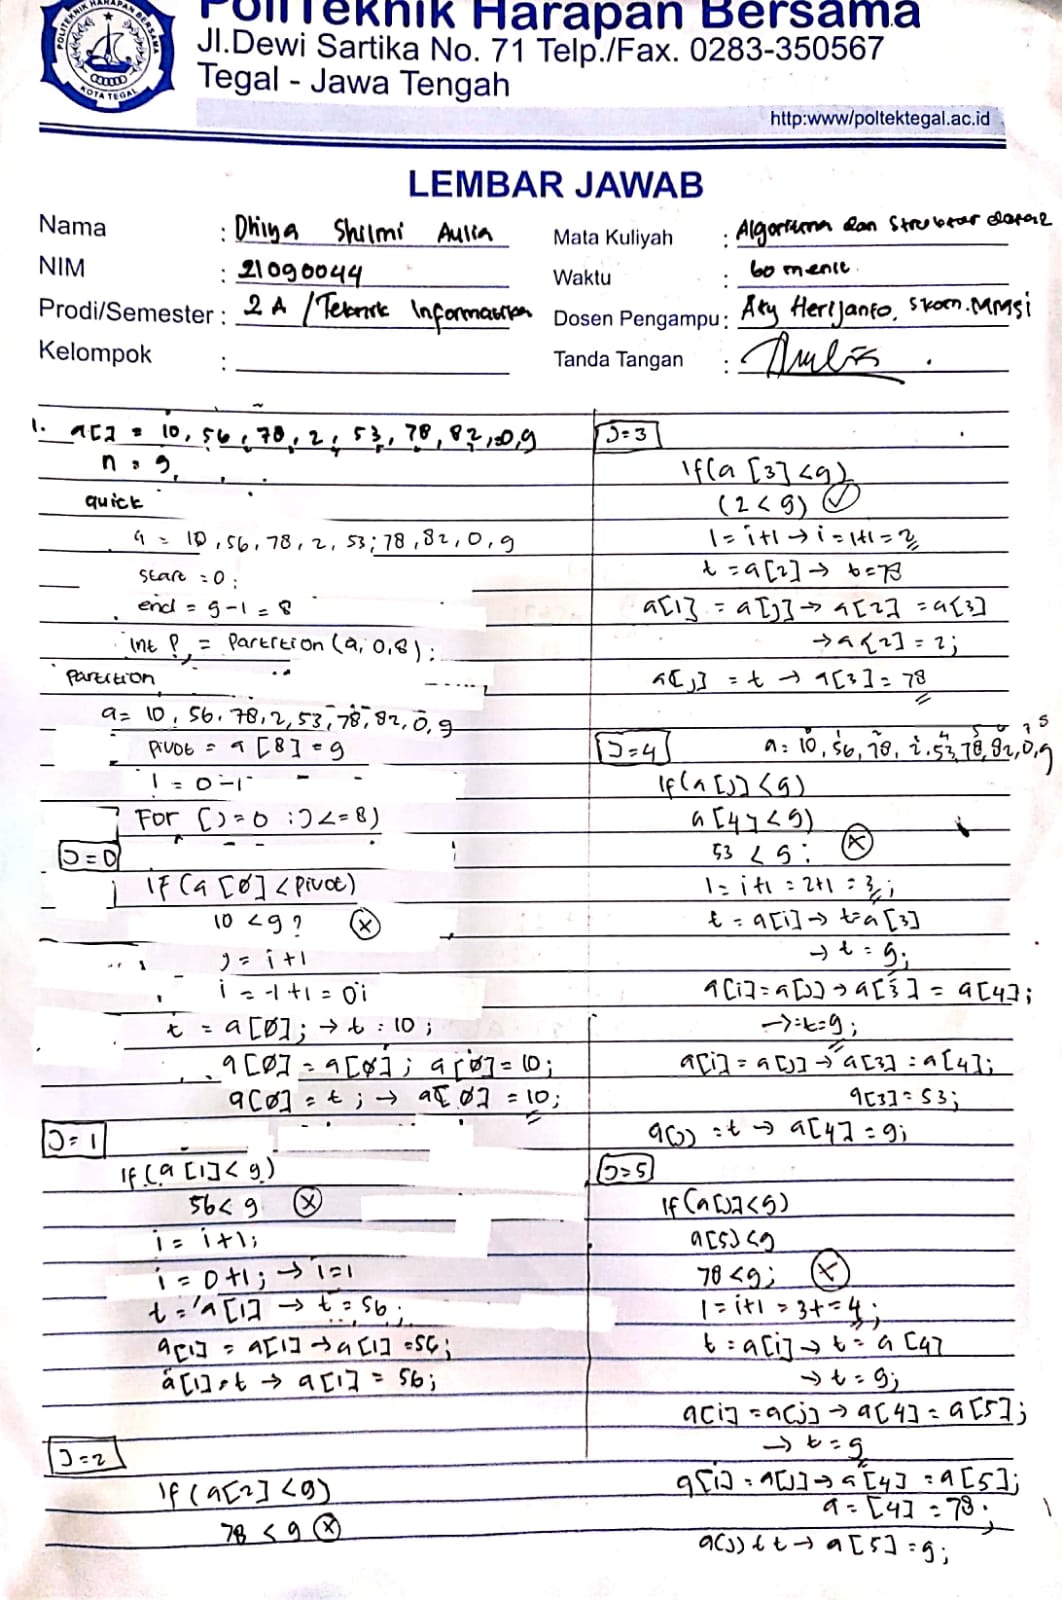 PoliTeknik Harapan Bersama
Jl.Dewi Sartika No. 71 Telp./Fax. 0283-350567
Tegal - Jawa Tengah
http:www/poltektegal.ac.id
POLITEKNIK HARAPAN BERSAMA
KOTA TEGAL
LEMBAR JAWAB
Nama : Dhiya Shilmi Aulia
NIM : 21090044
Prodi/Semester : 2A / Teknik Informatika
Kelompok :
Mata Kuliyah : Algoritma dan Struktur data 2
Waktu : 60 menit
Dosen Pengampu : Ary Herijanto, Skom.MMSi
Tanda Tangan :
1. a[] = 10, 56, 78, 2, 53, 78, 82, 0, 9
n = 9
quick
a = 10, 56, 78, 2, 53; 78, 82, 0, 9
start = 0;
end = 9-1 = 8
int P, = Partition (a, 0,8);
Partition
a= 10, 56, 78, 2, 53, 78, 82, 0, 9
pivot = a [8] = 9
i = 0-1
For [J=0 : J <= 8)
J=0
if (a [0] < pivot)
10 < 9 ?
j = i+1
i = -1+1 = 0;
t = a[0]; → t : 10;
a[0] = a[0]; a[0] = 10;
a[0] = t; → a[0] = 10;
J=1
if (a [1] < 9)
56 < 9
i = i+1;
i = 0+1; → i=1
t = a[1] → t = 56;
a[1] = a[1] → a[1] = 56;
a[1] = t → a[1] = 56;
J=2
if (a[2] < 9)
78 < 9
J=3
if (a [3] < 9)
(2 < 9)
i = i+1 → i = 1+1 = 2
t = a[2] → t=78
a[i] = a[j] → a[2] = a[3]
→ a[2] = 2;
a[j] = t → a[3] = 78
J=4
1 4 5 6 7 8
a: 10, 56, 78, 2, 53, 78, 82, 0, 9
if (a [j] < 9)
a [4] < 9)
53 < 9;
i = i+1 = 2+1 = 3;
t = a[i] → t=a[3]
→ t = 9;
a[i] = a[j] → a[3] = a[4];
→ = t = 9;
a[i] = a[j] → a[3] = a[4];
a[3] = 53;
a[j] = t → a[4] = 9;
J=5
if (a[j] < 9)
a[5] < 9
78 < 9;
i = i+1 = 3+ = 4;
t = a[i] → t = a [4]
→ t = 9;
a[i] = a[j] → a[4] = a[5];
→ t = 9
a[i] = a[j] → a[4] = a[5];
a = [4] = 78;
a(j) t t → a[5] = 9;